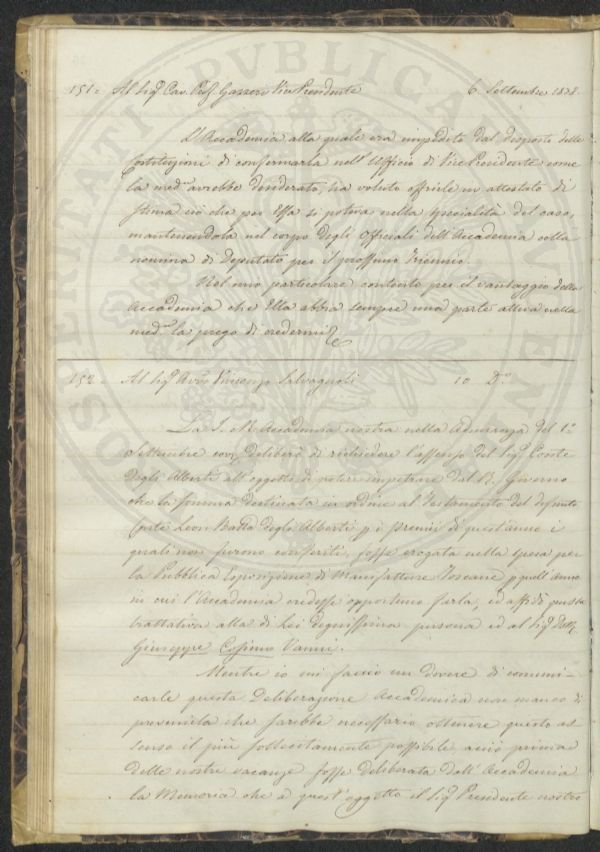 151= Al Sigr Cav. Prof. Gazzeri Vice Presidente 6. Settembre 1838.
L'Accademia alla quale era impedito dal disposto delle
Costituzioni di confermarla nell'Uffizio di Vice Presidente come
la medma avrebbe desiderato, ha voluto offrirle un attestato di
stima ciò che per Essa si poteva nella specialità del caso,
mantenendola nel corpo degli Officiali dell'Accademia colla
nomina di Deputato per il prossimo Triennio.
Nel mio particolare contento per il vantaggio della
Accademia che Ella abbia sempre una parte attiva nella
medma la prego di credermi &c
152= Al Sigr Avvo Vincenzo Salvagnoli 10 Do
La I. e R. Accademia nostra nella Adunanza del 1°
Settembre deliberò di richiedere l'assenso del Sigr Conte
degli Alberti all'oggetto di potere impetrare dal R. Governo
che la somma destinata in ordine al Testamento del defunto
Conte Leon Batta degli Alberti p i Premii di quest'anno i
quali non furono conferiti, fosse erogata nella spesa per
la Pubblica Esposizione di Manifatture Toscane p quell'anno
in cui l'Accademia credesse opportuno farla, ed affidò questa
trattativa alla di Lei degnissima persona ed al Sigr Dottr
Giuseppe Cosimo Vanni.
Mentre io mi faccio un dovere di comuni-
carle questa Deliberazione Accademica non manco di
prevenirla che sarebbe necessario ottenere questo as-
senso il più sollecitamente possibile, acciò prima
delle nostre vacanze fosse deliberata dall'Accademia
la Memoria che a quest'oggetto il Sigr Presidente nostro
PROSPERITATI PUBLICAE AUGENDAE